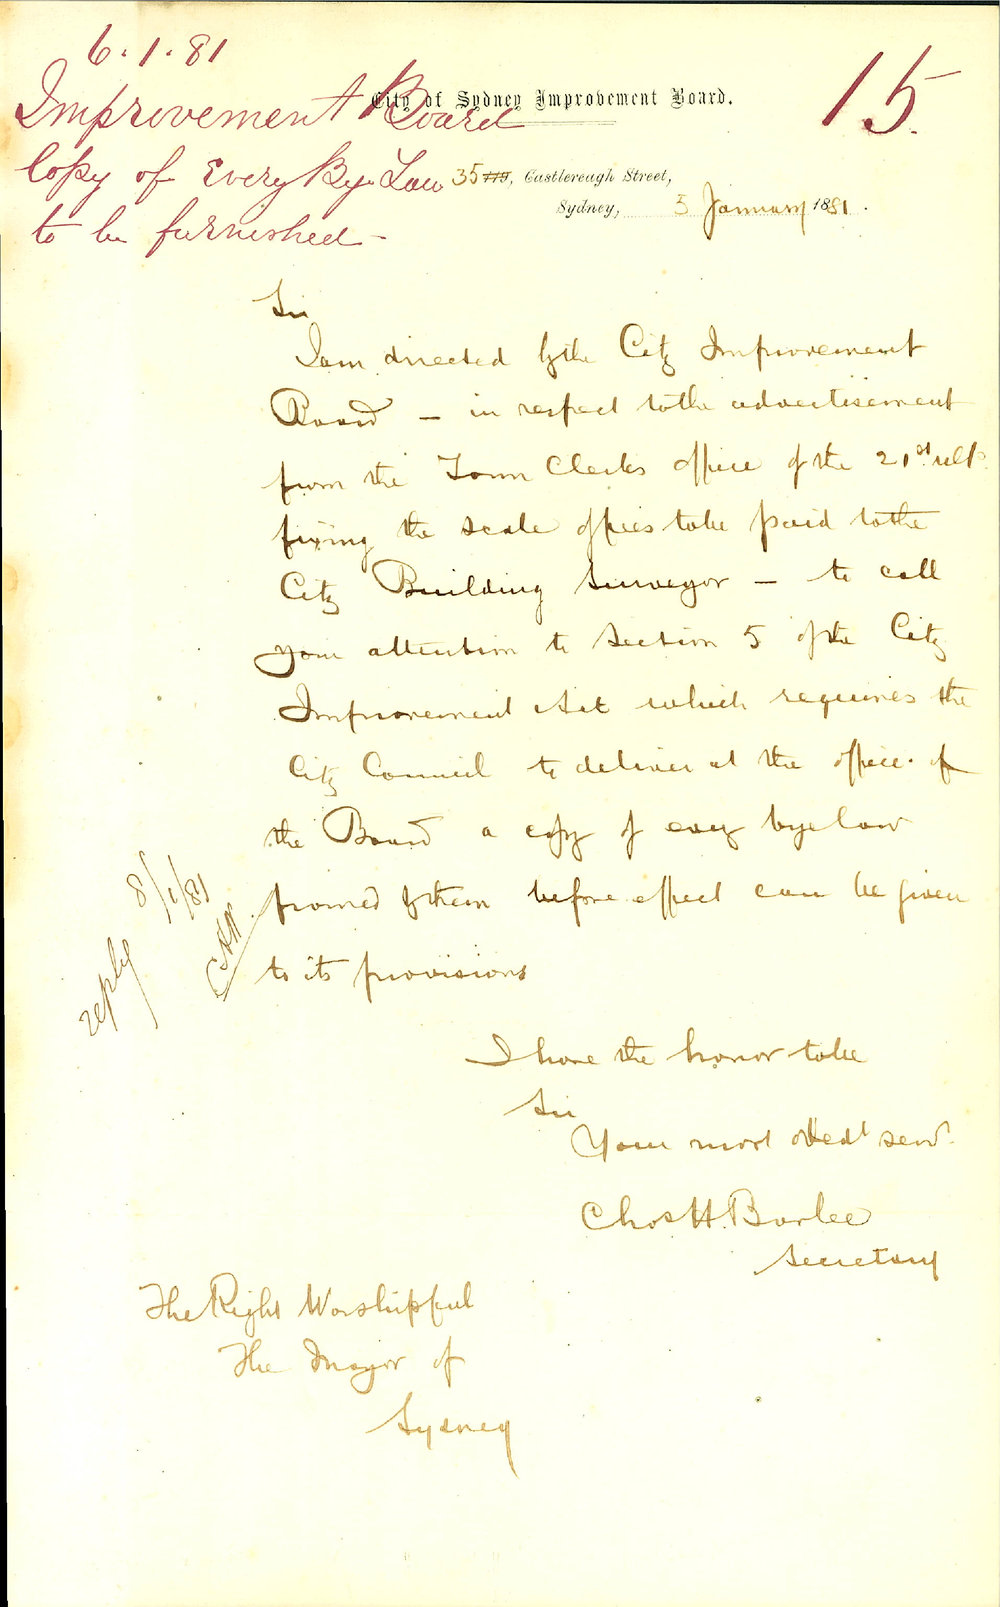 6.1.81
Improvement Board
Copy of Every By-Law
to be furnished -
15.
City of Sydney Improvement Board.
35 115, Castlereagh Street,
Sydney, 5 January 1881.
Sir
I am directed by the City Improvement
Board - in respect to the advertisement
from the Town Clerks office of the 21st ult.
fixing the scale of fees to be paid to the
City Building Surveyor - to call
your attention to Section 5 of the City
Improvement Act which requires the
City Council to deliver at the office of
the Board a copy of every bye law
framed by them before effect can be given
to its provisions
reply 8/1/81
I have the honor to be
Sir
Your most obedt servt
Chas H. Barlee
Secretary
The Right Worshipful
The Mayor of
Sydney